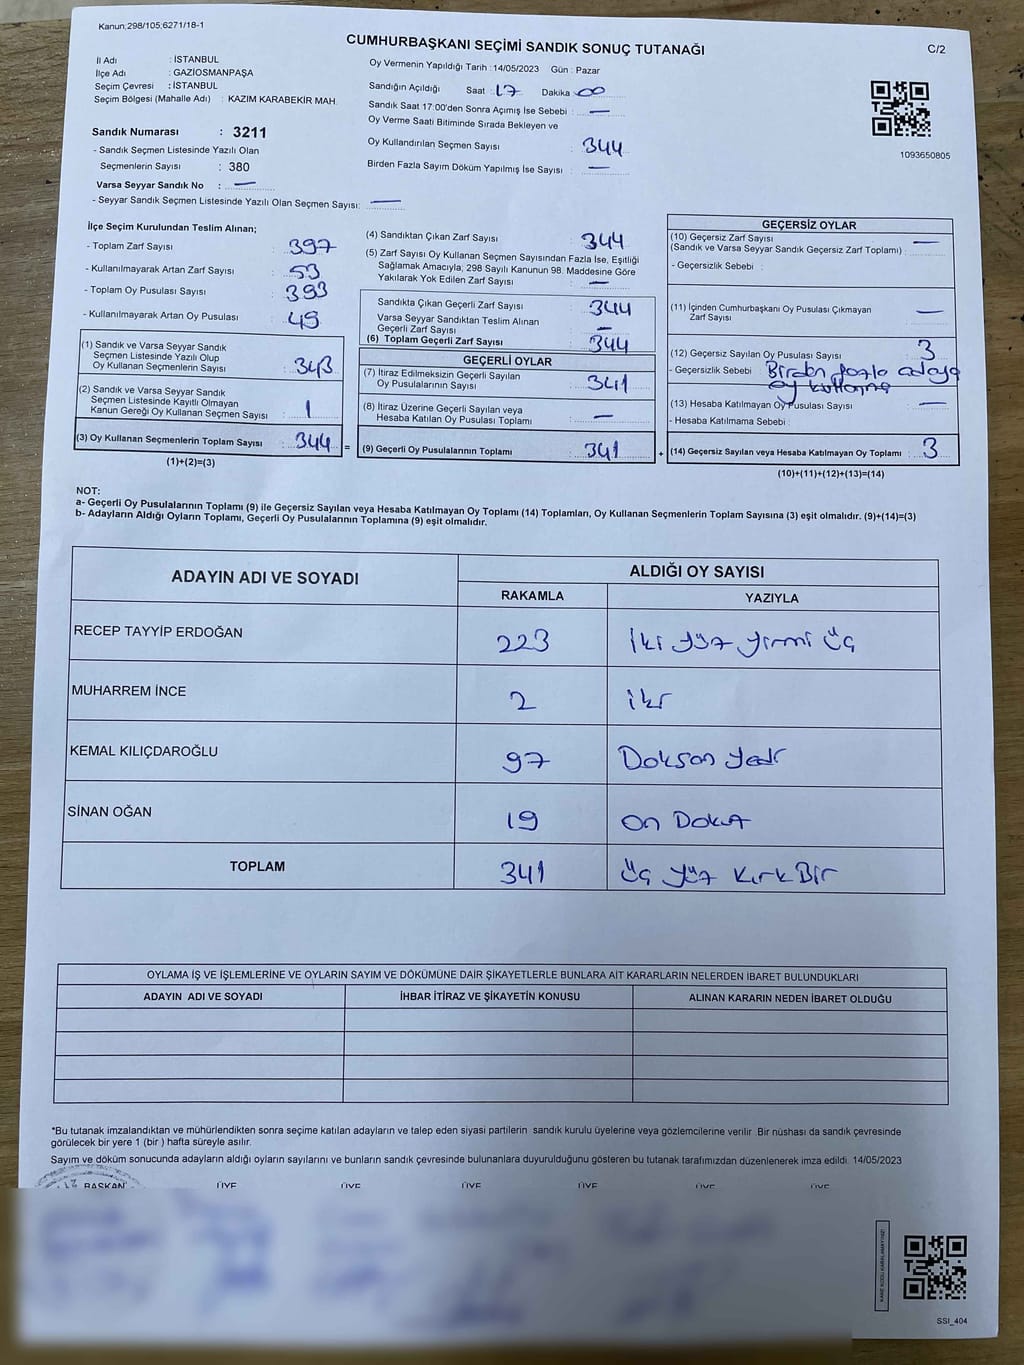 Kanun;298/105;6271/18-1
CUMHURBAŞKANI SEÇİMİ SANDIK SONUÇ TUTANAĞI
C/2
İl Adı : İSTANBUL
İlçe Adı : GAZİOSMANPAŞA
Seçim Çevresi : İSTANBUL
Seçim Bölgesi (Mahalle Adı) : KAZIM KARABEKİR MAH.
Sandık Numarası : 3211
- Sandık Seçmen Listesinde Yazılı Olan
Seçmenlerin Sayısı : 380
Varsa Seyyar Sandık No : —
- Seyyar Sandık Seçmen Listesinde Yazılı Olan Seçmen Sayısı: —
Oy Vermenin Yapıldığı Tarih : 14/05/2023 Gün : Pazar
Sandığın Açıldığı Saat : 17 Dakika : 00
Sandık Saat 17:00'den Sonra Açımış İse Sebebi : —
Oy Verme Saati Bitiminde Sırada Bekleyen ve
Oy Kullandırılan Seçmen Sayısı : 344
Birden Fazla Sayım Döküm Yapılmış İse Sayısı : —
1093650805
İlçe Seçim Kurulundan Teslim Alınan;
- Toplam Zarf Sayısı : 397
- Kullanılmayarak Artan Zarf Sayısı : 53
- Toplam Oy Pusulası Sayısı : 393
- Kullanılmayarak Artan Oy Pusulası : 49
(1) Sandık ve Varsa Seyyar Sandık
Seçmen Listesinde Yazılı Olup
Oy Kullanan Seçmenlerin Sayısı : 343
(2) Sandık ve Varsa Seyyar Sandık
Seçmen Listesinde Kayıtlı Olmayan
Kanun Gereği Oy Kullanan Seçmen Sayısı : 1
(3) Oy Kullanan Seçmenlerin Toplam Sayısı : 344 =
(1)+(2)=(3)
(4) Sandıktan Çıkan Zarf Sayısı : 344
(5) Zarf Sayısı Oy Kullanan Seçmen Sayısından Fazla İse, Eşitliği
Sağlamak Amacıyla, 298 Sayılı Kanunun 98. Maddesine Göre
Yakılarak Yok Edilen Zarf Sayısı : —
Sandıkta Çıkan Geçerli Zarf Sayısı : 344
Varsa Seyyar Sandıktan Teslim Alınan
Geçerli Zarf Sayısı : —
(6) Toplam Geçerli Zarf Sayısı : 344
GEÇERLİ OYLAR
(7) İtiraz Edilmeksizin Geçerli Sayılan
Oy Pusulalarının Sayısı : 341
(8) İtiraz Üzerine Geçerli Sayılan veya
Hesaba Katılan Oy Pusulası Toplamı : —
(9) Geçerli Oy Pusulalarının Toplamı : 341 +
GEÇERSİZ OYLAR
(10) Geçersiz Zarf Sayısı
(Sandık ve Varsa Seyyar Sandık Geçersiz Zarf Toplamı) : —
- Geçersizlik Sebebi :
(11) İçinden Cumhurbaşkanı Oy Pusulası Çıkmayan
Zarf Sayısı : —
(12) Geçersiz Sayılan Oy Pusulası Sayısı : 3
- Geçersizlik Sebebi : Birden fazla adaya
oy kullanma
(13) Hesaba Katılmayan Oy Pusulası Sayısı : —
- Hesaba Katılmama Sebebi :
(14) Geçersiz Sayılan veya Hesaba Katılmayan Oy Toplamı : 3
(10)+(11)+(12)+(13)=(14)
NOT:
a- Geçerli Oy Pusulalarının Toplamı (9) ile Geçersiz Sayılan veya Hesaba Katılmayan Oy Toplamı (14) Toplamları, Oy Kullanan Seçmenlerin Toplam Sayısına (3) eşit olmalıdır. (9)+(14)=(3)
b- Adayların Aldığı Oyların Toplamı, Geçerli Oy Pusulalarının Toplamına (9) eşit olmalıdır.
ADAYIN ADI VE SOYADI
ALDIĞI OY SAYISI
RAKAMLA YAZIYLA
RECEP TAYYİP ERDOĞAN 223 İki yüz yirmi üç
MUHARREM İNCE 2 iki
KEMAL KILIÇDAROĞLU 97 Doksan yedi
SİNAN OĞAN 19 on Dokuz
TOPLAM 341 üç yüz kırk Bir
OYLAMA İŞ VE İŞLEMLERİNE VE OYLARIN SAYIM VE DÖKÜMÜNE DAİR ŞİKAYETLERLE BUNLARA AİT KARARLARIN NELERDEN İBARET BULUNDUKLARI
ADAYIN ADI VE SOYADI İHBAR İTİRAZ VE ŞİKAYETİN KONUSU ALINAN KARARIN NEDEN İBARET OLDUĞU
*Bu tutanak imzalandıktan ve mühürlendikten sonra seçime katılan adayların ve talep eden siyasi partilerin sandık kurulu üyelerine veya gözlemcilerine verilir. Bir nüshası da sandık çevresinde
görülecek bir yere 1 (bir ) hafta süreyle asılır.
Sayım ve döküm sonucunda adayların aldığı oyların sayılarını ve bunların sandık çevresinde bulunanlara duyurulduğunu gösteren bu tutanak tarafımızdan düzenlenerek imza edildi. 14/05/2023
BAŞKAN ÜYE ÜYE ÜYE ÜYE ÜYE ÜYE
SSI_404